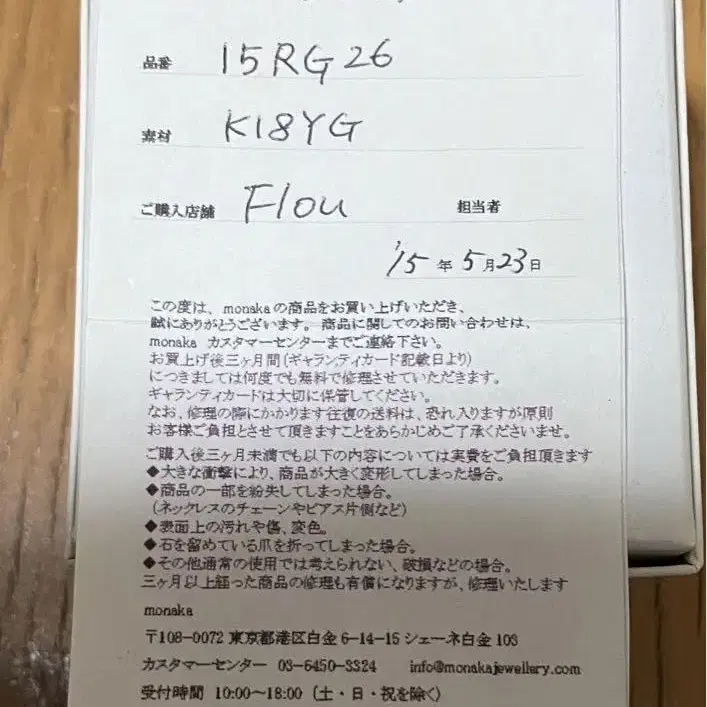 品番 15RG26
素材 K18YG
ご購入店舗 Flou 担当者
'15年5月23日
この度は、monakaの商品をお買い上げいただき、
誠にありがとうございます。商品に関してのお問い合わせは、
monaka カスタマーセンターまでご連絡下さい。
お買上げ後三ヶ月間(ギャランティカード記載日より)
につきましては何度でも無料で修理させていただきます。
ギャランティカードは大切に保管してください。
なお、修理の際にかかります往復の送料は、恐れ入りますが原則
お客様ご負担とさせて頂きますことをあらかじめご了承くださいませ。
ご購入後三ヶ月未満でも以下の内容については実費をご負担頂きます
◆大きな衝撃により、商品が大きく変形してしまった場合。
◆商品の一部を紛失してしまった場合。
(ネックレスのチェーンやピアス片側など)
◆表面上の汚れや傷、変色。
◆石を留めている爪を折ってしまった場合。
◆その他通常の使用では考えられない、破損などの場合。
三ヶ月以上経った商品の修理も有償になりますが、修理いたします
monaka
〒108-0072 東京都港区白金 6-14-15 シェーネ白金 103
カスタマーセンター 03-6450-3324 info@monakajewellery.com
受付時間 10:00~18:00 (土・日・祝を除く)